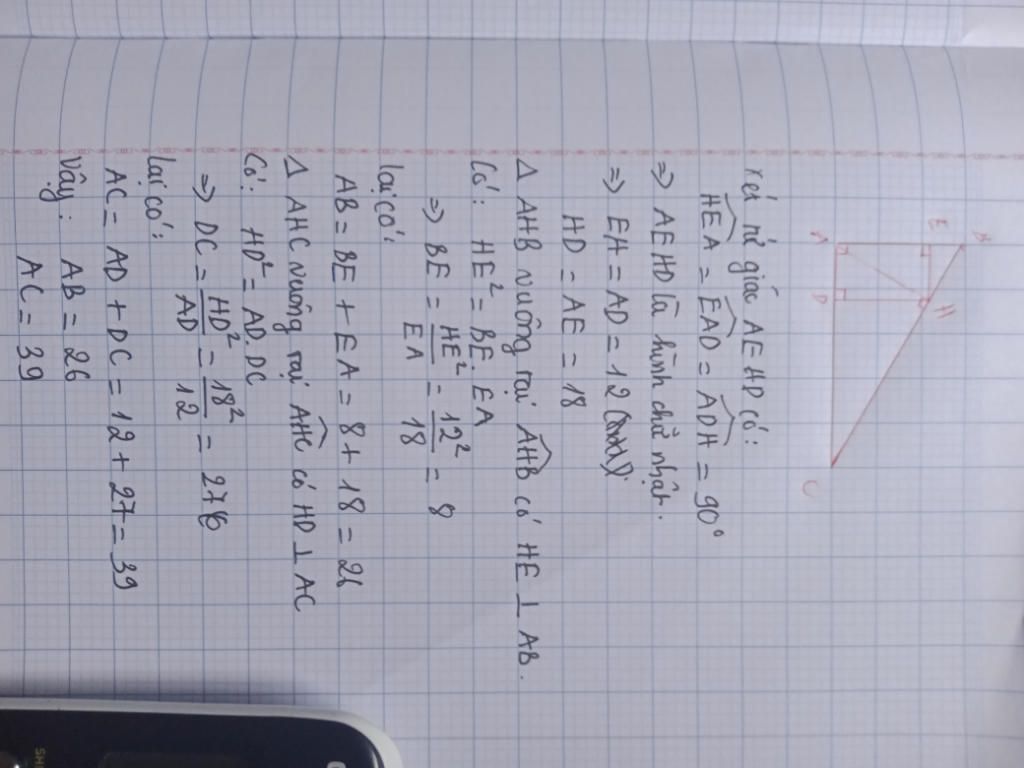 B
E
H
A
D
C
Xét tứ giác AEHD có:
HEA = EAD = ADH = 90°
⇒ AEHD là hình chữ nhật.
⇒ EH = AD = 12
HD = AE = 18
Δ AHB vuông tại AHB có HE ⊥ AB.
Có: HE² = BE. EA
⇒ BE = HE²/EA = 12²/18 = 8
Lại có:
AB = BE + EA = 8 + 18 = 26
Δ AHC vuông tại AHC có HD ⊥ AC
Có: HD² = AD. DC
⇒ DC = HD²/AD = 18²/12 = 27
Lại có:
AC = AD + DC = 12 + 27 = 39
Vậy: AB = 26
AC = 39